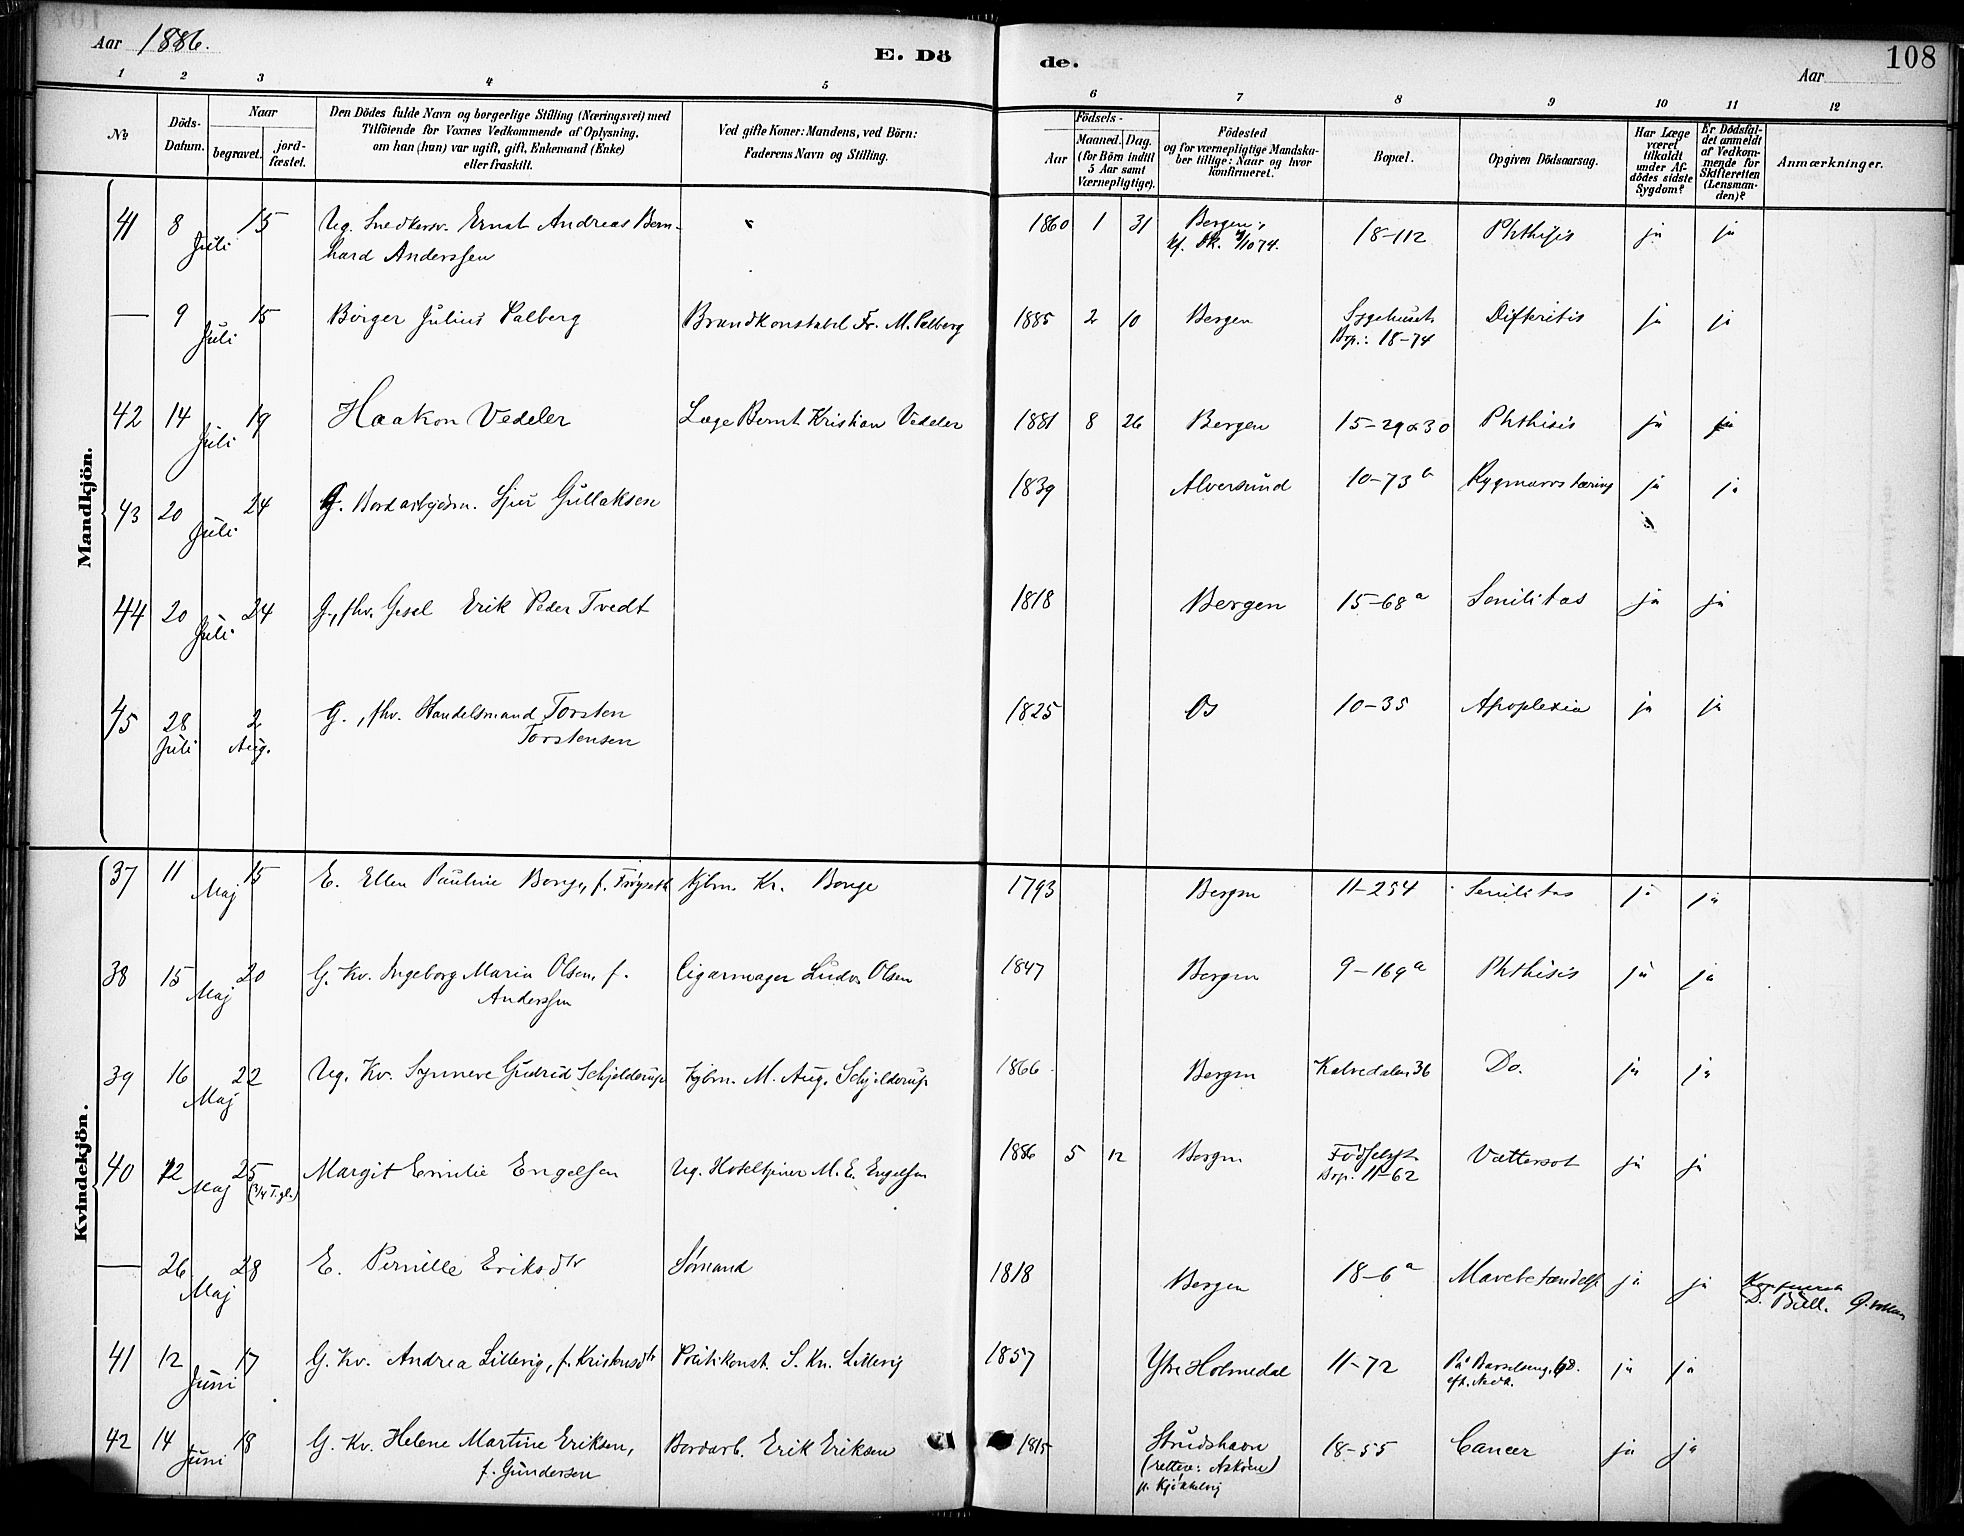 Aar 1886.
E. Döde.
Aar
108
1 2 3 4 5 6 7 8 9 10 11 12
No
Döds-Datum.
Naar
begravet.
jord-fæstet.
Den Dödes fulde Navn og borgerlige Stilling (Næringsvei) med
Tilföiende for Voxnes Vedkommende af Oplysning,
om han (hun) var ugift, gift, Enkemand (Enke)
eller fraskilt.
Ved gifte Koner: Mandens, ved Börn:
Faderens Navn og Stilling.
Födsels-
Aar
Maaned. Dag.
(for Börn indtil
5 Aar samt
Værnepligtige).
Födested
og for værnepligtige Mandska-
ber tillige: Naar og hvor
konfirmeret.
Bopæl.
Opgiven Dödsaarsag.
Har Læge
været
tilkaldt
under Af-
dödes sidste
Sygdom?
Er Dödsfal-
det anmeldt
af Vedkom-
mende for
Skifteretten
(Lensman-
den)?
Anmærkninger.
Mandkjön.
41 8 Juli 15 Ug. Snedkersv. Ernst Andreas Bern-
hard Anderssen 1860 1 31 Bergen, 18-112 Phthisis ja ja
kf. Dk. 4/10 74.
— 9 Juli 15 Börger Julius Salberg Brandkonstabel Fr. M. Salberg 1885 2 10 Bergen Sygehuset Difteritis ja ja
Bop.: 18-74
42 14 Juli 19 Haakon Vedeler Læge Bernt Kristian Vedeler 1881 8 26 Bergen 15-29 & 30 Phthisis ja ja
43 20 Juli 24 G. Bordarbejdsm. Sjur Gullaksen 1839 Alversund 10-73 b Rygmarvstæring ja ja
44 20 Juli 24 G., fhv. Gesel Erik Peder Tvedt 1818 Bergen 15-68 a Senilitas ja ja
45 28 Juli 2 Aug. G., fhv. Handelsmand Torsten
Torstensen 1825 Os 10-35 Apoplexia ja ja
Kvindekjön.
37 11 Maj 15 E. Ellen Pauline Bonge, f. Kjbm. Kr. Bonge 1793 Bergen 11-254 Senilitas ja ja
38 15 Maj 20 G. Kv. Ingeborg Maria Olsen, f.
Anderssen Cigarmager Ludv. Olsen 1847 Bergen 9-169 a Phthisis ja ja
39 16 Maj 22 Ug. Kv. Synneve Gudrid Schjelderup Kjbm. M. Aug. Schjelderup 1866 Bergen Kalvedalen 36 Do. ja ja
40 12 Maj 25 Margit Emilie Engelsen Ug. M. E. Engelsen 1886 5 12 Bergen Födselsst. Vattersot ja ja
(3/4 T. gl.) Bop. 11-62
— 26 Maj 28 E. Pernille Eriksdtr Sömand 1818 Bergen 18-6 a ja ja
D. Bull.
41 12 Juni 17 G. Kv. Andrea Lillevig, f. Kristensdtr Politikonst. S. Kn. Lillevig 1857 Ytre Holmedal 11-72 På Barselseng, ja ja
42 14 Juni 18 G. Kv. Helene Martine Eriksen,
f. Gundersen Bordarb. Erik Eriksen 1815 Strudshavn 18-55 Cancer ja ja
(rettere: Askøen)